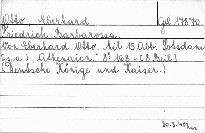 Otto, Eberhard. Gd 17870.
Friedrich Barbarossa.
Von Eberhard Otto. Mit 15 Abb. Potsdam
(: Athenaion. 8° 168
(Deutsche Könige und Kaiser.)